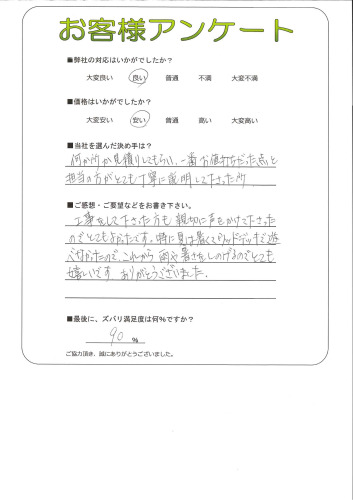 お客様アンケート
■弊社の対応はいかがでしたか?
大変良い 良い 普通 不満 大変不満
■価格はいかがでしたか?
大変安い 安い 普通 高い 大変高い
■当社を選んだ決め手は?
何か所か見積りしてもらい、一番お値打ちだった点と
担当の方がとても丁寧に説明して下さった所
■ご感想・ご要望などをお書き下さい。
工事をして下さった方も親切に声をかけて下さった
のでとてもよかったです。特に夏は暑くてウッドデッキで遊
べなかったので、これから雨や暑さをしのげるのでとても
嬉しいです ありがとうございました。
■最後に、ズバリ満足度は何%ですか?
90 %
ご協力頂き、誠にありがとうございました。